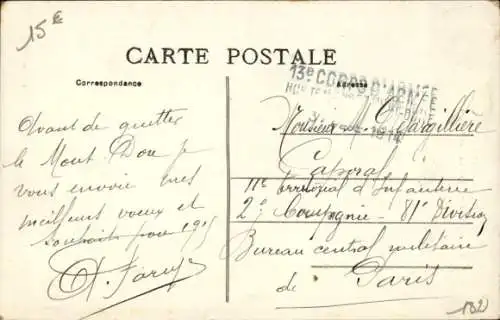 15E
CARTE POSTALE
Correspondance
Adresse
13e CORPS D'ARMÉE
1914
Avant de quitter
le Mont Dore je
vous envoie mes
meilleurs voeux et
souhaits pour 1915
Monsieur Largillière
Caporal
11e territorial d'Infanterie
2e Compagnie - 81e Division
Bureau central militaire
de Paris
132